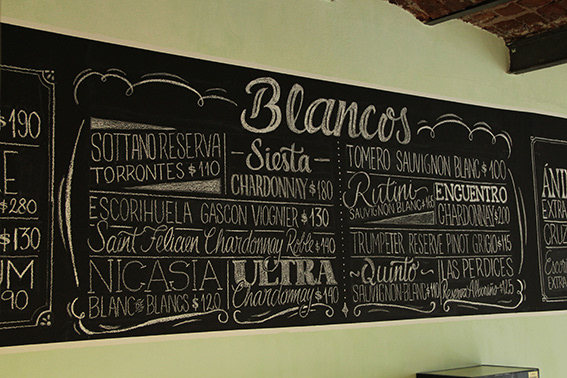 $190
$280
$130
UM
90
Blancos
SOTTANO RESERVA
TORRONTES $110
Siesta
CHARDONNAY $180
ESCORIHUELA GASCON VIOGNIER $130
Saint Felicien Chardonnay Roble $140
NICASIA
BLANC DE BLANCS $120
ULTRA
Chardonnay $190
TOMERO SAUVIGNON BLANC $100
Rutini
SAUVIGNON BLANC
ENCUENTRO
CHARDONNAY $200
TRUMPETER RESERVE PINOT GRIGIO $115
Quinto
SAUVIGNON BLANC $110
LAS PERDICES
Reserva Albariño $125
EXTRA
CRUZ
EXTRA